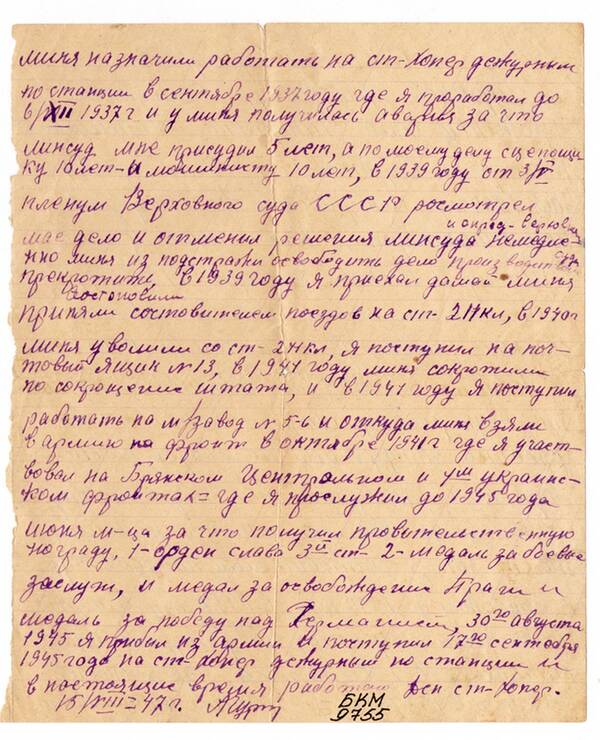 миня назначили работать на ст-Хопер дежурным
по станции в сентябре 1937 году где я проработал до
6/XII 1937 г и у миня получилась авария за что
минсуд мне присудил 5 лет, а по моему делу сцепощи-
ку 10 лет-и мошинисту 10 лет, в 1939 году от 3/V
пленум Верховного суда СССР росмотрел
мае дело и отменил решения минсуда немедле-
нно миня из подстражи освободить дело производством
прекротить, в 1939 году я приехал дамай миня
востоновили
приняли состовителем поездов на ст- 2Нкл, в 1940 г
миня уволили со ст- 2Нкл, я поступил на поч-
товый ящик № 13, в 1941 году миня сокротили
по сокрощение штата, и в 1941 году я поступил
работать на м/завод № 5-6 и откуда миня взяли
в армию на фронт в октябре 1941 г где я участ-
вовал на Брянском Центральном и 1ым украинс-
ком фронтах = где я прослужил до 1945 года
июня м-ца за что получил провительственную
нограду, 1-орден слава 3ей ст- 2-медаль за боевые
заслуги, и медал за освобождение Праги и
медаль за победу над Германией, 30го августа
1945 я прибыл из армии и поступил 17го сентября
1945 года на ст- Хопер дежурным по станции и
в настоящие время работаю дсп ст-Хопер.
15/VIII-47 г.
БКМ
9755